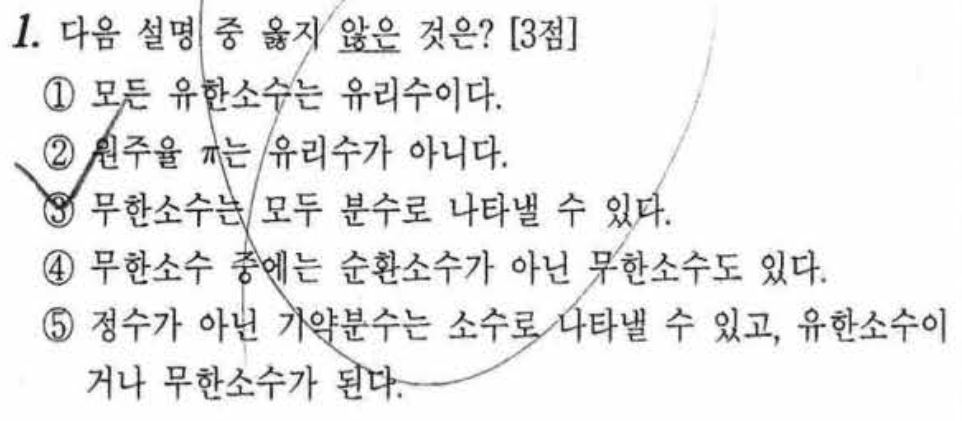 1. 다음 설명 중 옳지 않은 것은? [3점]
① 모든 유한소수는 유리수이다.
② 원주율 π는 유리수가 아니다.
③ 무한소수는 모두 분수로 나타낼 수 있다.
④ 무한소수 중에는 순환소수가 아닌 무한소수도 있다.
⑤ 정수가 아닌 기약분수는 소수로 나타낼 수 있고, 유한소수이
거나 무한소수가 된다.